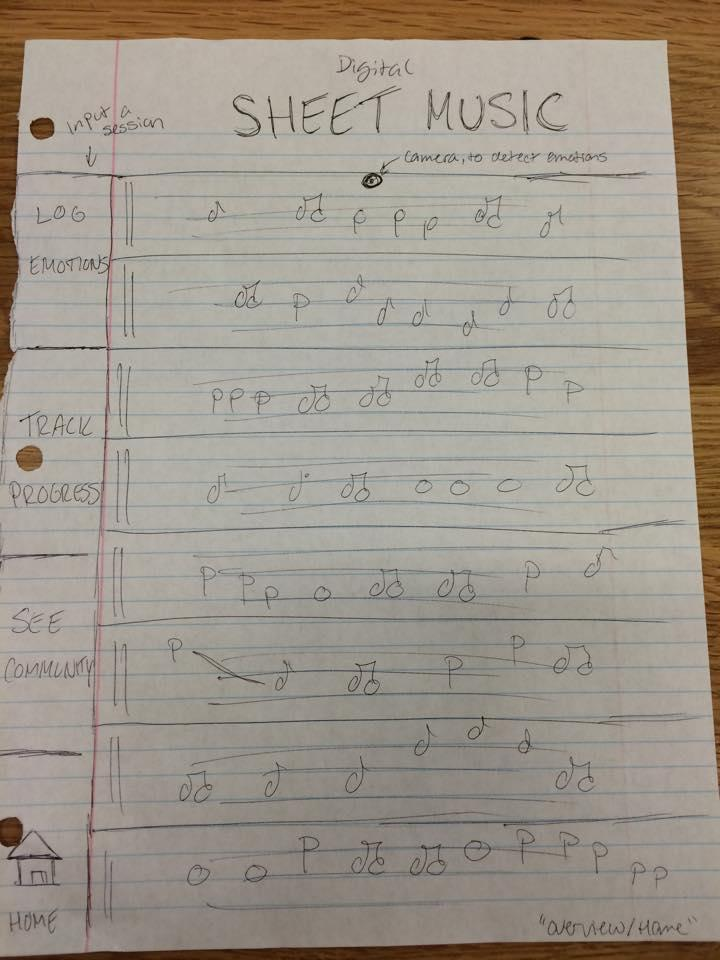 Digital
SHEET MUSIC
Input a
session
camera, to detect emotions
LOG
EMOTIONS
TRACK
PROGRESS
SEE
COMMUNITY
HOME
"overview/Home"